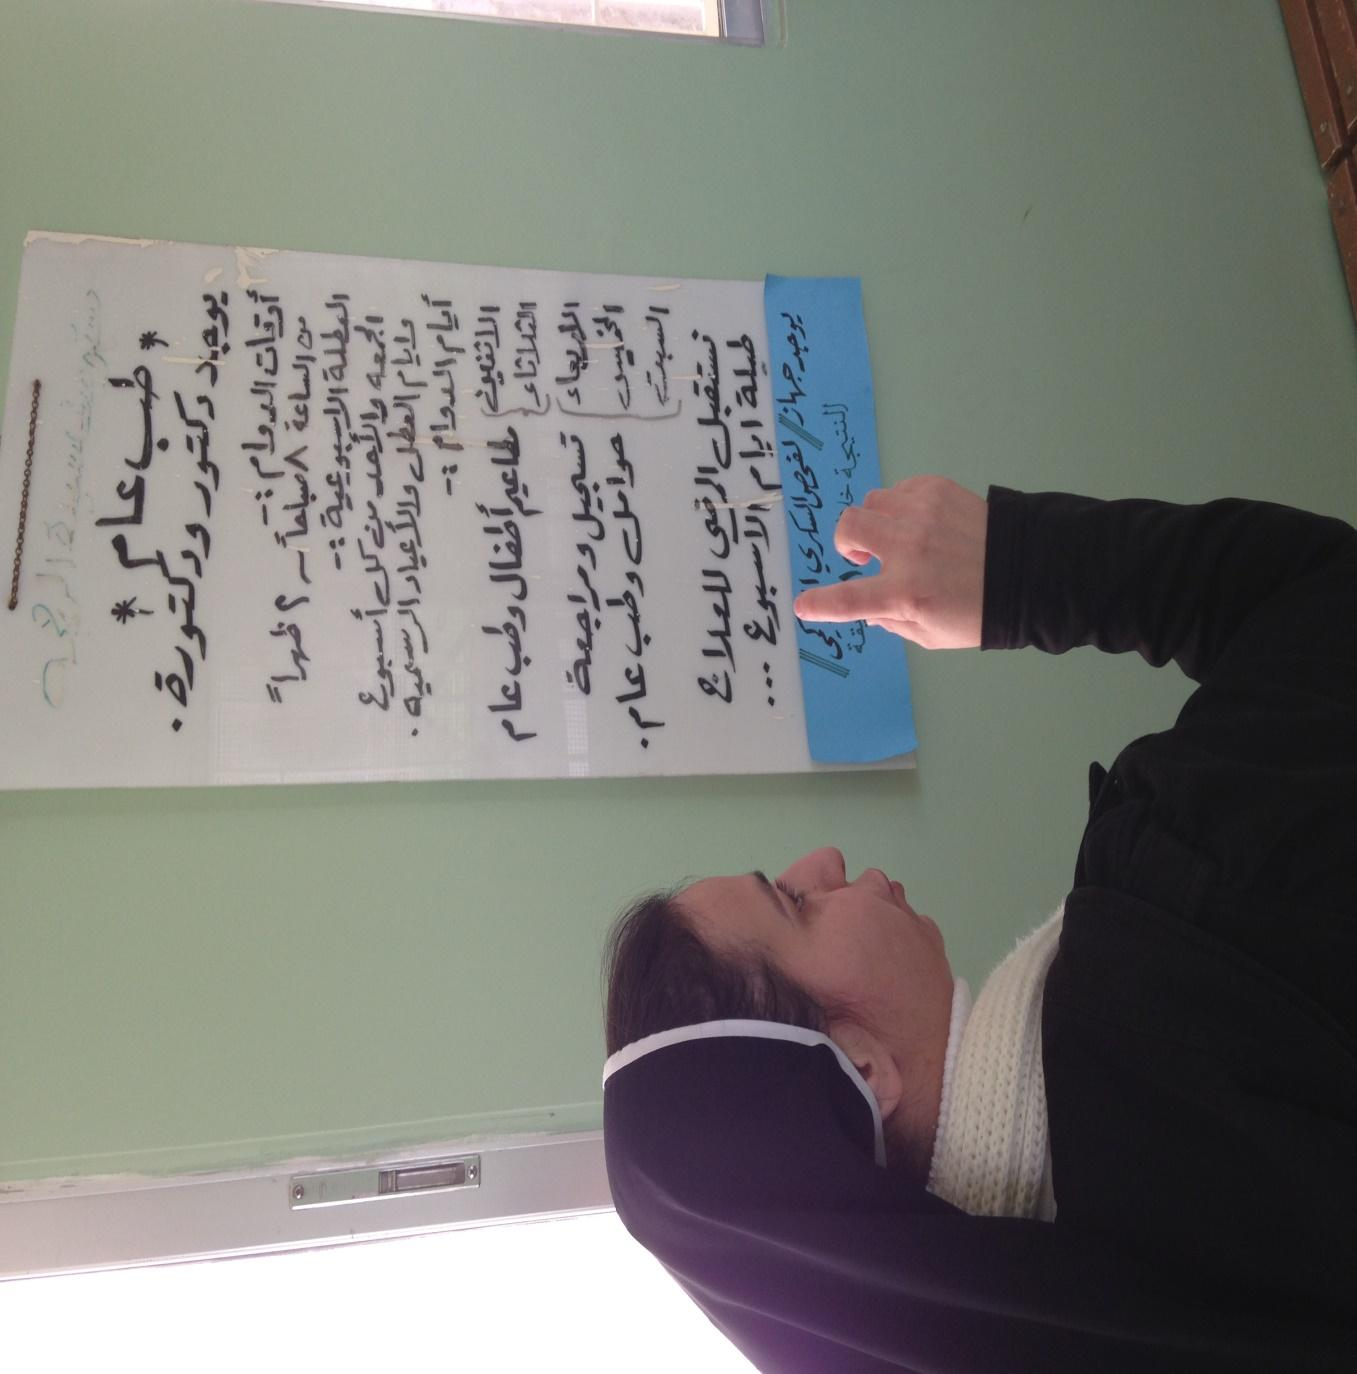 * طب عام *
يوجد دكتور ودكتورة.
أوقات الدوام :-
من الساعة ٨ صباحاً - ٢ ظهراً
العطلة الأسبوعية :-
الجمعه والأحد من كل أسبوع
وايام العطل والأعياد الرسميه.
أيام الدوام :-
الاثنين
الثلاثاء
مطاعيم أطفال وطب عام
الاربعاء
الخميس
السبت
تسجيل ومراجعة
حوامل وطب عام.
نستقبل المرضى للعلاج
طيلة ايام الاسبوع ...
يوجد جهاز // لفحص السكري
النتيجة